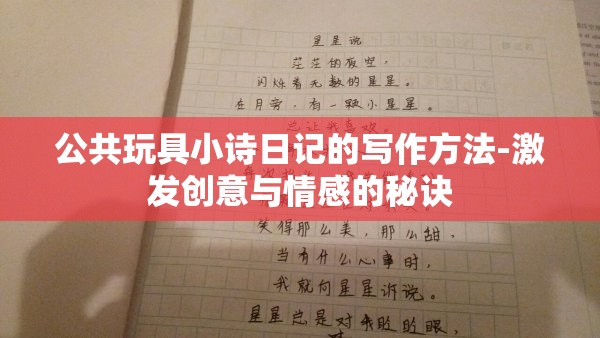 星星说
茫茫的夜空,
闪烁着无数的星星。
在月旁,有一颗小星星。
公共玩具小诗日记的写作方法-激
发创意与情感的秘诀
笑得那么美,那么甜,
当有什么心事时,
我就向星星诉说。
星星总是对我眨眨眼,